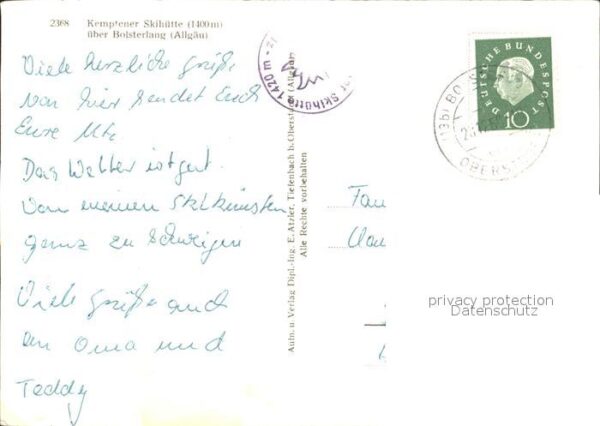 2368 Kemptener Skihütte (1400m)
über Bolsterlang (Allgäu)
Viele herzliche Grüße
von hier sendet Euch
Eure Ute
Das Wetter ist gut.
Von meinen Skikünsten
ganz zu schweigen
Viele Grüße auch
an Oma und
Teddy
Autn. u. Verlag Dipl.-Ing. E. Atzler, Tiefenbach b. Oberstdorf (Allgäu)
Alle Rechte vorbehalten
Skihütte 1420 m
DEUTSCHE BUNDESPOST
10
(13b) BO
OBERST
Tan
Clau
privacy protection
Datenschutz